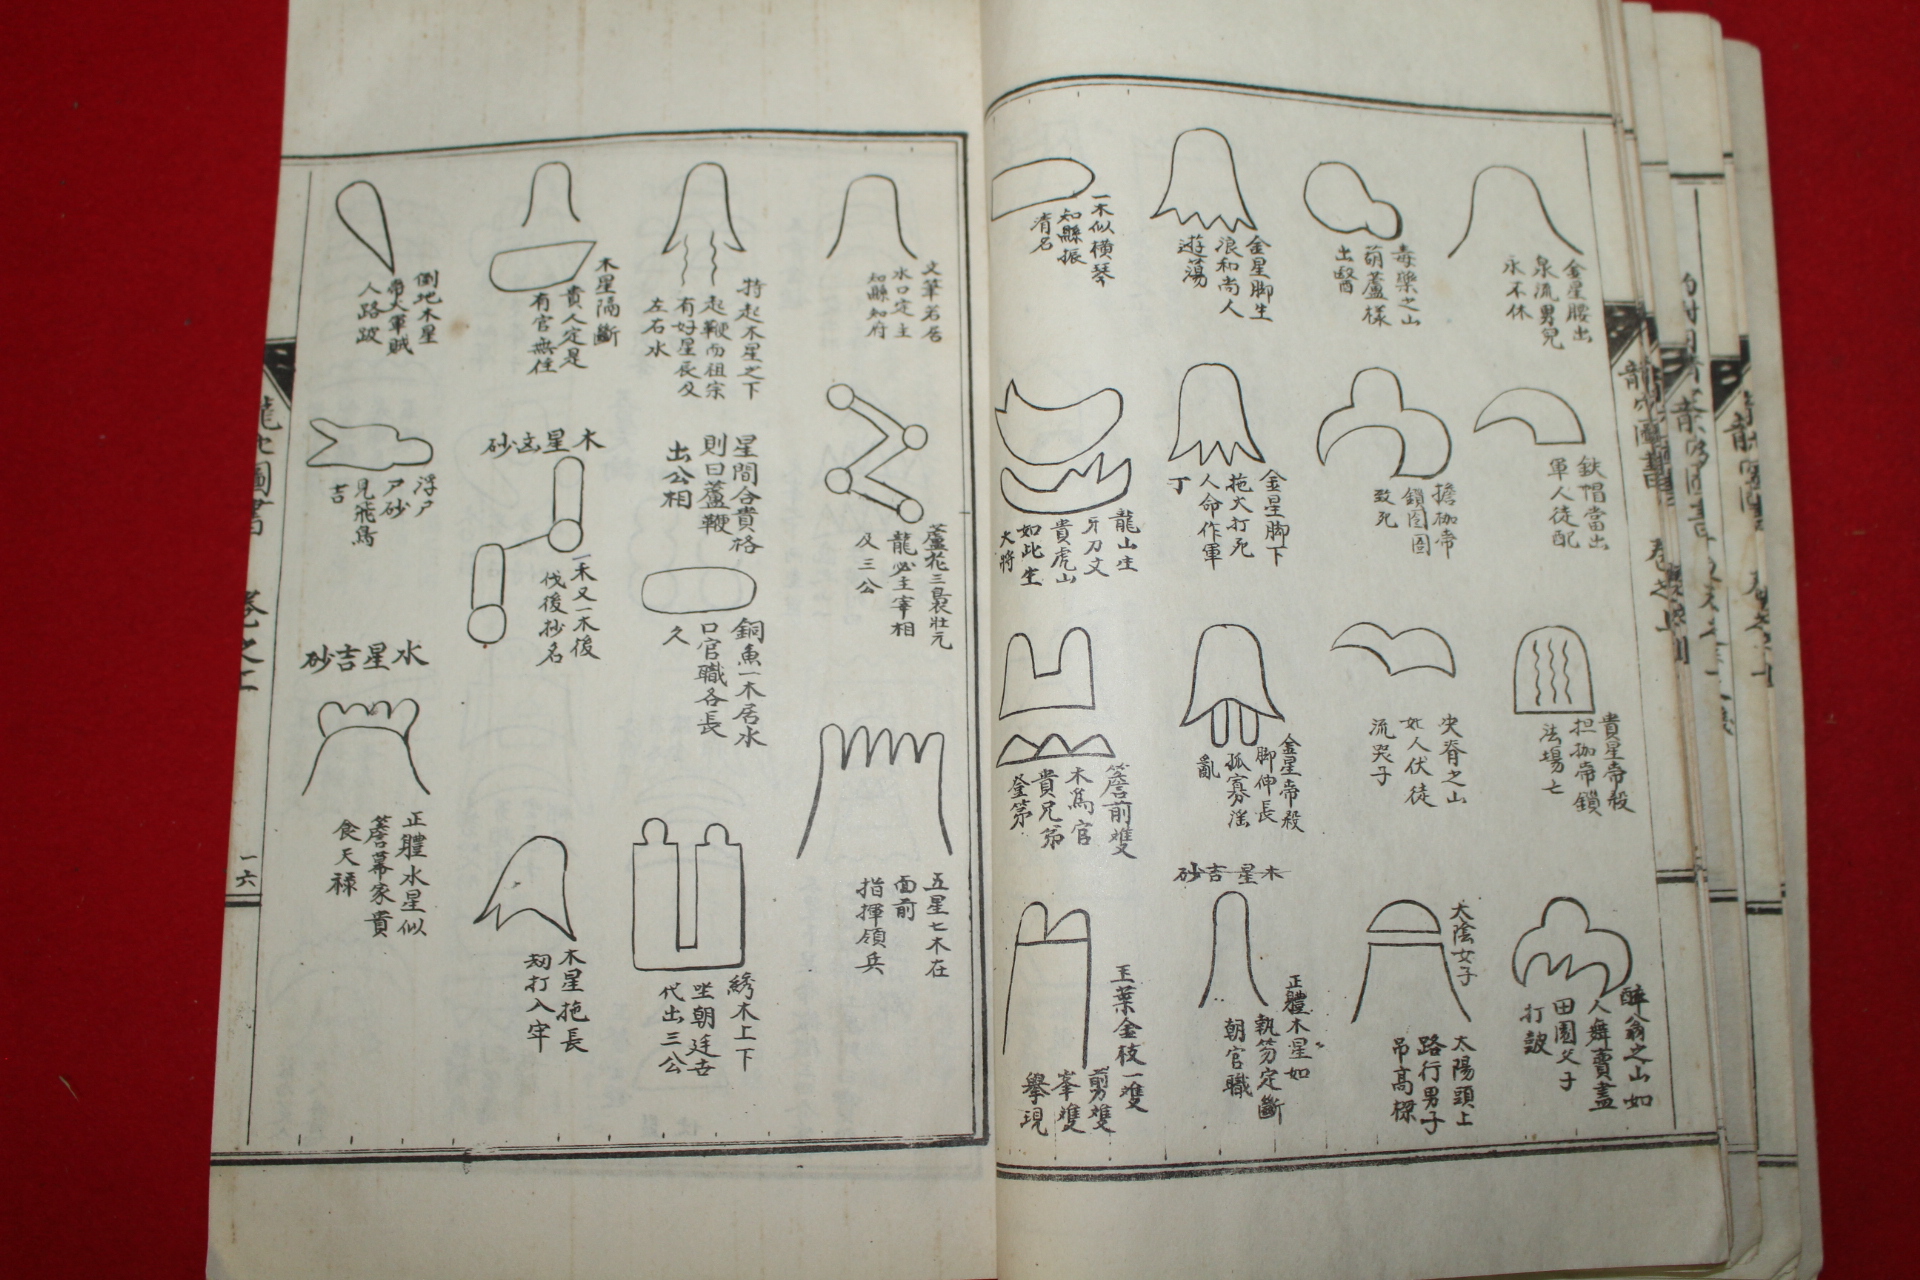 金星腰出
泉流男兒
永不休
鉄帽當出
軍人徒配
貴星帝殺
担枷帝鎖
法場亡
醉翁之山如
人舞賣盡
田園父子
打鼓
毒藥之山
葫蘆樣
出醫
擔枷帝
鎖囹圄
致死
尖脊之山
女人伏徒
流哭子
太陰女子
太陽頭上
路行男子
吊高樑
金星脚生
浪和尚人
遊蕩
金星脚下
拖火打死
人命作軍
丁
金星帝殺
脚伸長
孤寡淫
亂
木星吉砂
正體木星如
執笏定斷
朝官職
一木似橫琴
知縣振
淸名
龍山生
牙刀文
貴虎山
如此生
大將
簷前雙
木爲官
貴兄弟
登第
玉葉金枝一雙
剪雙
峯雙
擧現
文筆若居
水口定主
知縣知府
蘆花三裊壯元
龍必主宰相
及三公
五星七木在
面前
指揮領兵
特起木星之下
起鞭而祖宗
有好星辰及
左右水
星間合貴格
則曰蘆鞭
出公相
銅魚一木居水
口官職各長
久
綉木上下
坐朝廷
代出三公
木星隔斷
貴人定是
有官無任
木星凶砂
一木又一木後
伐後抄名
木星拖長
打入牢
倒地木星
帝火軍賊
人路跛
浮尸
尸砂
見飛鳥
吉
水星吉砂
正體水星似
簷幕家貴
食天祿
一六